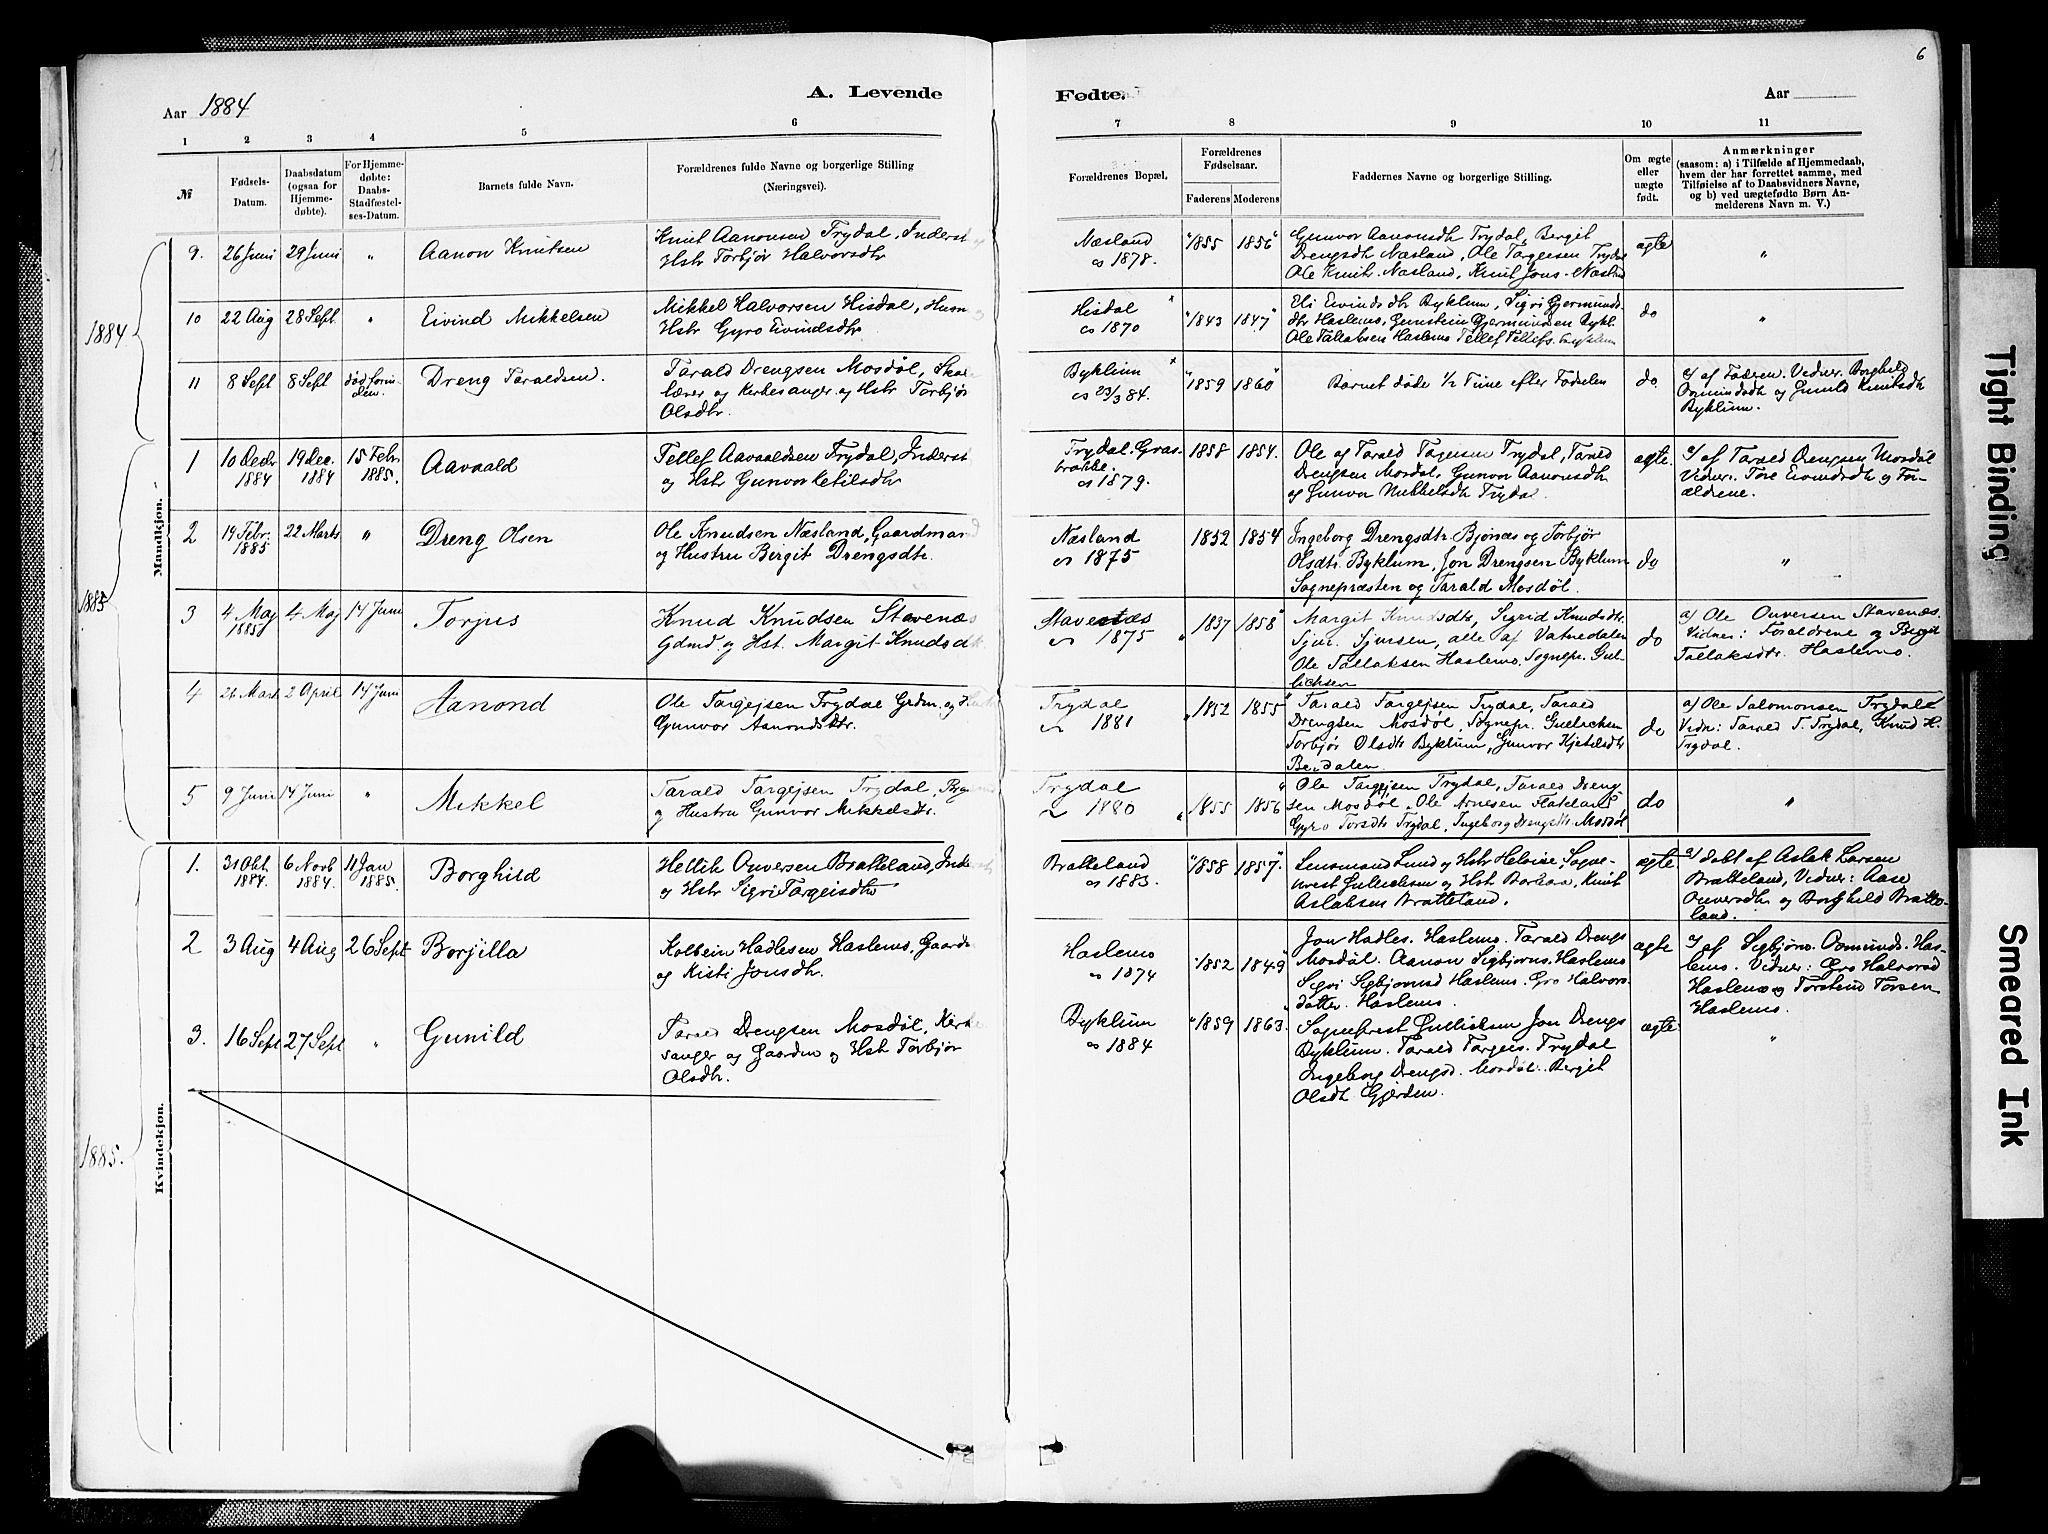 6
Aar 1884
A. Levende
Fødte.
Aar
1 2 3 4 5 6 7 8 9 10 11
№
Fødsels-
Datum.
Daabsdatum
(ogsaa for
Hjemme-
døbte).
For Hjemme-
døbte:
Daabs-
Stadfæstel-
ses-Datum.
Barnets fulde Navn.
Forældrenes fulde Navne og borgerlige Stilling
(Næringsvei).
Forældrenes Bopæl.
Forældrenes
Fødselsaar.
Faderens Moderens
Faddernes Navne og borgerlige Stilling.
Om ægte
eller
uægte
født.
Anmærkninger
(saasom: a) i Tilfælde af Hjemmedaab,
hvem der har forrettet samme, med
Tilføielse af to Daabsvidners Navne,
og b) ved uægtefødte Børn An-
melderens Navn m. V.)
1884
Mandkjøn.
9. 26 Juni 29 Juni " Aanon Knutsen
Knut Aanonsen Trydal, Inderst
Hstr Torbjør Halvorsdtr
Næsland
1878.
1855 1856
Gunvor Aanonsdtr Trydal, Bergit
Drengsdtr Næsland, Ole Targeisen
Ole Knuts. Næsland, Knut Jons. Næsland
ægte "
10 22 Aug 28 Sept " Eivind Mikkelsen
Mikkel Halvorsen Hisdal, Husm
Hstr Gyro Eivindsdtr
Hisdal
1870
1843 1847
Eivindsdtr Byklum, Sigri Gjermunds
dtr Haslemo, Gunstein Gjermundsen Bykl.
Ole Tallaksen Haslemo Tellef Tellefs.
do "
11 8 Sept 8 Sept død forin-
den. Dreng Taraldsen.
Tarald Drengsen Mosdøl, Sko-
lærer og Kirkesanger og Hstr Torbjør
Olsdtr.
Byklum
23/3 84.
1859 1860
Barnet døde 1/2 Time efter Fødselen
do
af Faderen. Vidner. Borghild
Osmundsdtr og Gunild Knutsdtr
Byklum.
1885
1 10 Decbr
1884 19 Dec.
1884 15 Febr.
1885. Aavaald
Tellef Aavaaldsen Trydal, Inderst
og Hstr Gunvor Ketilsdtr
Trydal. Gras-
brokke.
1879.
1858 1854.
Ole og Tarald Targeisen Trydal, Tarald
Drengsen Mosdøl, Gunvor Aanonsdtr
og Gunvor Mikkelsdtr Trydal.
ægte.
af Tarald Drengsen Mosdøl
Vidner. Tore Eivindsdtr og For-
ældrene.
2 14 Febr.
1885 22 Marts " Dreng Olsen
Ole Knudsen Næsland, Gaardmand
og Hustru Bergit Drengsdtr.
Næsland
1875
1852 1854
Ingeborg Drengsdtr. Bjønæs og Torbjør
Olsdtr. Byklum, Jon Drengsen Byklum
Sognepræsten og Tarald Mosdøl.
do "
3 4 Maj
1885 4 Maj 14 Juni Torjus
Knud Knudsen Stavenæs
Gdmd og Hst. Margit Knudsdtr
Stavenæs
1875
1837 1858
Margit Knudsdtr, Sigrid Knudsdtr.
Sjur Sjursen, alle af Vatnedalen
Ole Tallaksen Haslemo. Sognepr. Gul-
lichsen
do
a) Ole Onversen Stavenæs.
Vidner: Forældrene og Bergit
Tallaksdtr. Haslemo.
4 26 Marts 2 April 14 Juni Aanond
Ole Targejsen Trydal Grdm. og Hustr
Gunvor Aanondsdtr.
Trydal
1881
1852 1855
Tarald Targejsen Trydal, Tarald
Drengsen Mosdøl, Sognepr. Gullichsen
Torbjør Olsdtr Byklum, Gunvor Kjetilsdtr
Berdalen
do
a) Ole Salomonsen Trydal
Vidn: Tarald T. Trydal, Knud H.
Trydal.
5 9 Juni 14 Juni " Mikkel
Tarald Targejsen Trydal,
og Hustru Gunvor Mikkelsdtr.
Trydal
1880
1855 1856
Ole Targejsen Trydal, Tarald Dreng-
sen Mosdøl, Ole Arnesen Flateland,
Gyro Torsdtr Trydal, Ingeborg Drengsdtr Mosdøl
do "
1885.
Kvindekjøn.
1. 31 Okt
1884. 6 Novb
1884. 11 Jan
1885. Borghild
Hellik Onversen Bratteland, Inderst
og Hstr Sigri Targeisdtr
Bratteland
1883.
1858 1857
Lensmand Lund og Hstr Heloise, Sogne-
prest Gullichsen og Hst Barbara, Knut
Aslaksen Bratteland.
ægte
a) døbt af Aslak Larsen
Bratteland, Vidner: Aase
Onversdtr og Borghild Bratte-
land.
2 3 Aug 4 Aug 26 Sept Borjilla
Kolbein Hadlesen Haslemo, Gaardm
og Kisti Jonsdtr.
Haslemo
1874
1852 1849
Jon Hadles. Haslemo. Tarald Drengs
Mosdøl. Aanon Sigbjørns. Haslemo
Sigri Sigbjørnsd Haslemo. Gro Halvors-
datter. Haslemo.
ægte
af Sigbjørn Osmunds. Has-
lemo. Vidner: Gro Halvorsd
Haslemo og Torstein Torsen
Haslemo.
3. 16 Sept 27 Sept " Gunild
Tarald Drengsen Mosdøl, Kirke-
sanger og Gaardm og Hstr Torbjør
Olsdtr.
Byklum
1884
1859 1863.
Sogneprest Gullichsen Jon Drengs
Byklum. Tarald Targeis. Trydal
Ingeborg Drengsd. Mosdøl. Bergit
Olsdtr Gjerden.
ægte "
Tight Binding
Smeared Ink